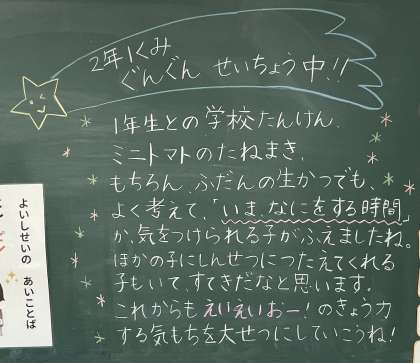 2年1くみ
ぐんぐん せいちょう中!!
1年生との学校たんけん、
ミニトマトのたねまき、
もちろん、ふだんの生かつでも、
よく考えて、「いま、なにをする時間」
か、気をつけられる子がふえましたね。
ほかの子にしんせつにつたえてくれる
子もいて、すてきだなと思います。
これからもえいえいおー!のきょう力
する気もちを大せつにしていこうね!
よいしせいの あいことば